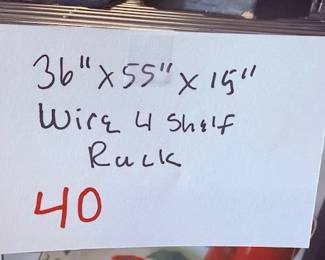 36" x 55" x 15"
Wire 4 Shelf
Rack
40